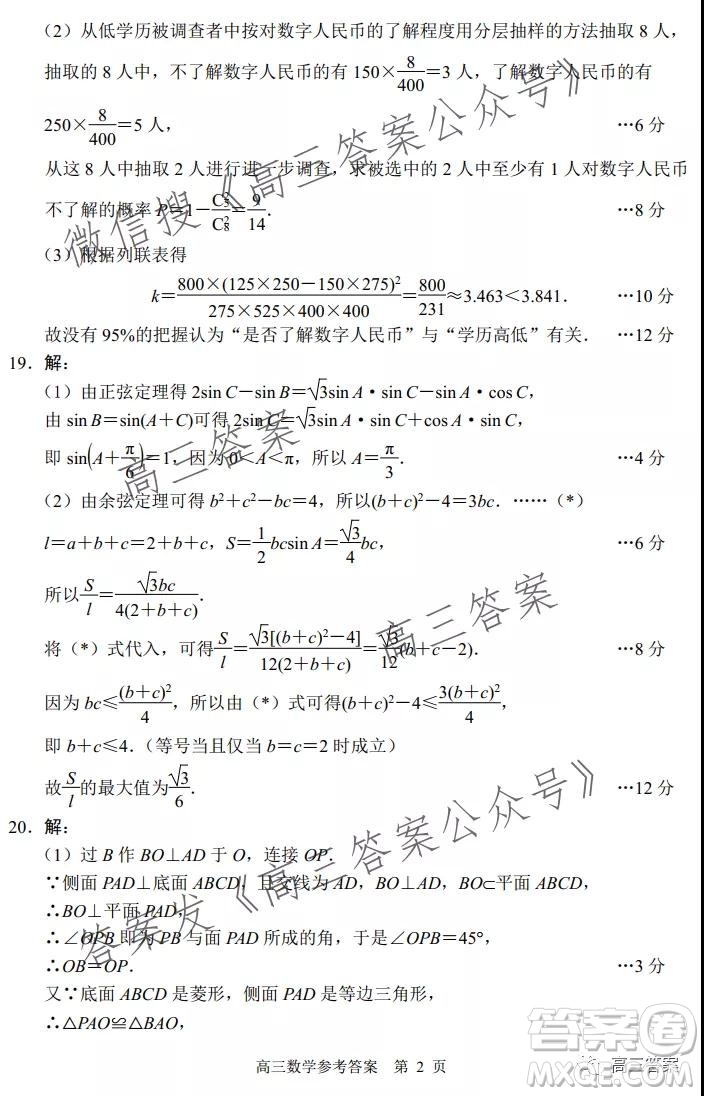 （2）从低学历被调查者中按对数字人民币的了解程度用分层抽样的方法抽取 8 人，
抽取的 8 人中，不了解数字人民币的有 150×8/400＝3 人，了解数字人民币的有
250×8/400＝5 人， …6 分
从这 8 人中抽取 2 人进行进一步调查，求被选中的 2 人中至少有 1 人对数字人民币
不了解的概率 P＝1－C²₅/C²₈＝9/14． …8 分
（3）根据列联表得
k＝800×(125×250－150×275)²/275×525×400×400＝800/231≈3.463＜3.841． …10 分
故没有 95%的把握认为“是否了解数字人民币”与“学历高低”有关． …12 分
19．解：
（1）由正弦定理得 2sin C－sin B＝√3sin A·sin C－sin A·cos C，
由 sin B＝sin(A＋C)可得 2sin C＝√3sin A·sin C＋cos A·sin C，
即 sin(A＋π/6)＝1，因为 0＜A＜π，所以 A＝π/3． …4 分
（2）由余弦定理可得 b²＋c²－bc＝4，所以(b＋c)²－4＝3bc．……（*）
l＝a＋b＋c＝2＋b＋c，S＝1/2bcsin A＝√3/4bc， …6 分
所以S/l＝√3bc/4(2＋b＋c)．
将（*）式代入，可得S/l＝√3[(b＋c)²－4]/12(2＋b＋c)＝√3/12(b＋c－2)． …8 分
因为 bc≤(b＋c)²/4，所以由（*）式可得(b＋c)²－4≤3(b＋c)²/4，
即 b＋c≤4．（等号当且仅当 b＝c＝2 时成立）
故S/l的最大值为√3/6． …12 分
20．解：
（1）过 B 作 BO⊥AD 于 O，连接 OP．
∵侧面 PAD⊥底面 ABCD，且交线为 AD，BO⊥AD，BO⊂平面 ABCD，
∴BO⊥平面 PAD，
∴∠OPB 即为 PB 与面 PAD 所成的角，于是∠OPB＝45°，
∴OB＝OP． …3 分
又∵底面 ABCD 是菱形，侧面 PAD 是等边三角形，
∴△PAO≌△BAO，
高三数学参考答案 第 2 页
微信搜《高三答案公众号》
高三答案
高三答案
答案发《高三答案公众号》
高三答案
答案卷
MXQE.COM